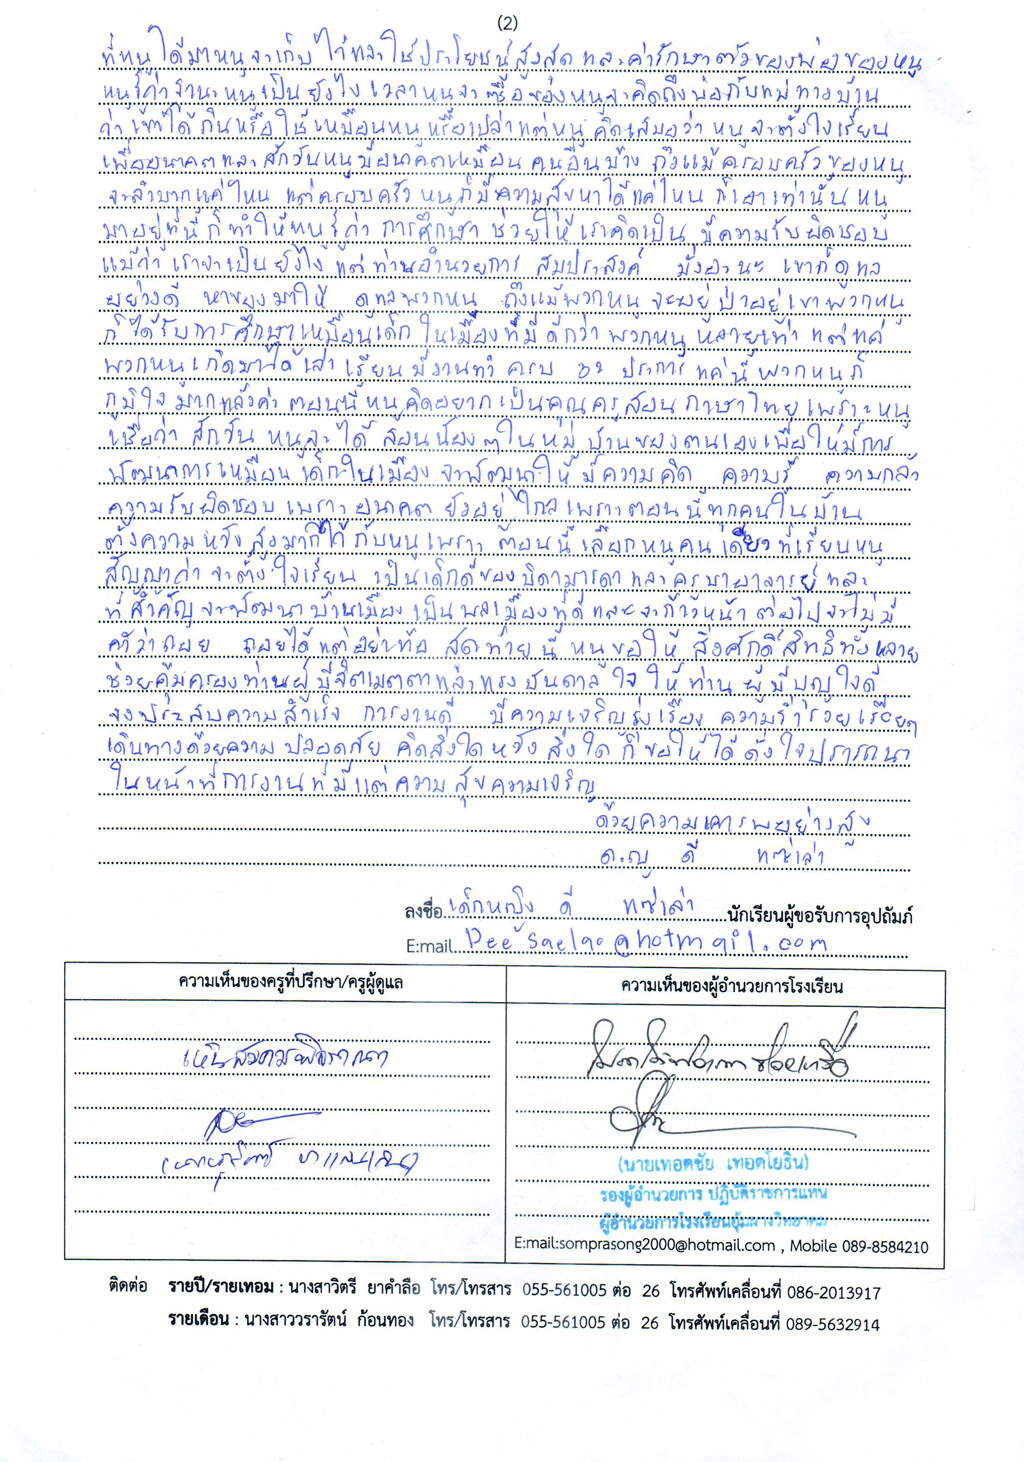 (2)
ที่หนูได้มาหนูจะเก็บไว้และใช้ประโยชน์สูงสุด และค่ารักษาตัวของพ่อของหนู
หนูรู้ว่าฐานะหนูเป็นยังไง เวลาหนูจะซื้อของหนูจะคิดถึงพ่อกับแม่ทางบ้าน
ว่าเขาได้กินหรือใช้เหมือนหนูหรือเปล่าแต่หนูคิดเสมอว่า หนูจะตั้งใจเรียน
เพื่ออนาคตและสักวันหนูมีอนาคตเหมือนคนอื่นบ้าง ถึงแม้ครอบครัวของหนู
จะลำบากแค่ไหน แต่ครอบครัวหนูก็มีความสุขหาได้แค่ไหน ก็เอาเท่านั้น หนู
มาอยู่ที่นี้ก็ทำให้หนูรู้ว่า การศึกษา ช่วยให้เราคิดเป็น มีความรับผิดชอบ
แม้ว่าเราจะเป็นยังไง แต่ท่านอำนวยการ สมประสงค์ มั่งอะนะ เขาก็ดูแล
อย่างดี หาของมาให้ ดูแลพวกหนู ถึงแม้พวกหนูจะอยู่ป่าอยู่เขาพวกหนู
ก็ได้รับการศึกษาเหมือนเด็กในเมืองที่มีดีกว่าพวกหนูหลายเท่า แต่แค่
พวกหนูเกิดมาได้เล่าเรียนมีงานทำ ครบ ๓๒ ประการ แค่นี้พวกหนูก็
ภูมิใจมากแล้วค่ะ ตอนนี้หนูคิดอยากเป็นคุณครูสอนภาษาไทย เพราะหนู
เชื่อว่า สักวัน หนูจะได้ สอนน้องๆในหมู่บ้านของตนเองเพื่อให้มีการ
พัฒนาการเหมือนเด็กในเมือง จะพัฒนาให้มีความคิด ความรู้ ความกล้า
ความรับผิดชอบ เพราะอนาคต ยังอยู่ไกลเพราะตอนนี้ทุกคนในบ้าน
ตั้งความหวังสูงมากไว้กับหนูเพราะ ตอนนี้เลือกหนูคนเดียวที่เรียนหนู
สัญญาว่า จะตั้งใจเรียน เป็นเด็กดีของบิดามารดา และครูบาอาจารย์ และ
ที่สำคัญจะพัฒนาบ้านเมืองเป็นพลเมืองที่ดีและจะก้าวหน้าต่อไปจะไม่มี
คำว่าถอย ถอยได้แต่อย่าท้อ สุดท้ายนี้ หนูขอให้ สิ่งศักดิ์สิทธิ์ทั้งหลาย
ช่วยคุ้มครองท่านผู้มีจิตเมตตาและแรงบันดาลใจให้ท่าน ผู้มีบุญใจดี
จงประสบความสำเร็จ การงานดี มีความเจริญรุ่งเรือง ความร่ำรวยเรื่อยๆ
เดินทางด้วยความปลอดภัย คิดสิ่งใดหวังสิ่งใดก็ขอให้ได้ดั่งใจปรารถนา
ในหน้าที่การงานที่มีแต่ความสุขความเจริญ
ด้วยความเคารพอย่างสูง
ด.ญ ดี แซ่เล่า
ลงชื่อ เด็กหญิง ดี แซ่เล่า นักเรียนผู้ขอรับการอุปถัมภ์
E:mail Dee Saelao@hotmail.com
ความเห็นของครูที่ปรึกษา/ครูผู้ดูแล
ความเห็นของผู้อำนวยการโรงเรียน
เห็นสมควรพิจารณา
(นายเทอดชัย เทอดโยธิน)
รองผู้อำนวยการ ปฏิบัติราชการแทน
ผู้อำนวยการโรงเรียนอุ้มผางวิทยาคม
E:mail:somprasong2000@hotmail.com , Mobile 089-8584210
ติดต่อ รายปี/รายเทอม : นางสาวิตรี ยาคำลือ โทร/โทรสาร 055-561005 ต่อ 26 โทรศัพท์เคลื่อนที่ 086-2013917
รายเดือน : นางสาววรารัตน์ ก้อนทอง โทร/โทรสาร 055-561005 ต่อ 26 โทรศัพท์เคลื่อนที่ 089-5632914